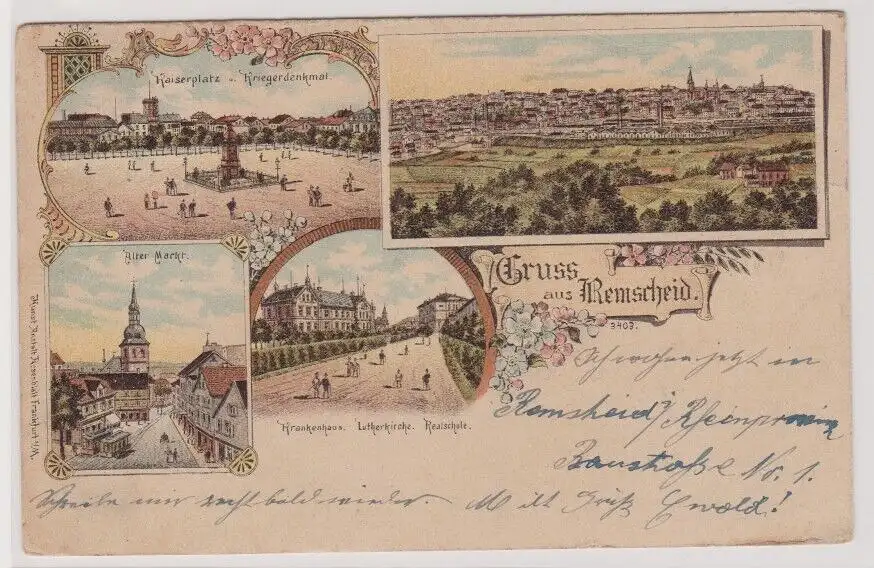 Kaiserplatz u. Kriegerdenkmal.
Alter Markt.
Krankenhaus. Lutherkirche. Realschule.
Gruss
aus Remscheid.
3403.
Kunst Anstalt Rosenblatt Frankfurt a/M.
Ich wohne jetzt in
Remsheid/Rheinprovinz
Baustraße No. 1.
Schreibe mir recht bald wieder. Mit Gruß Ewald!